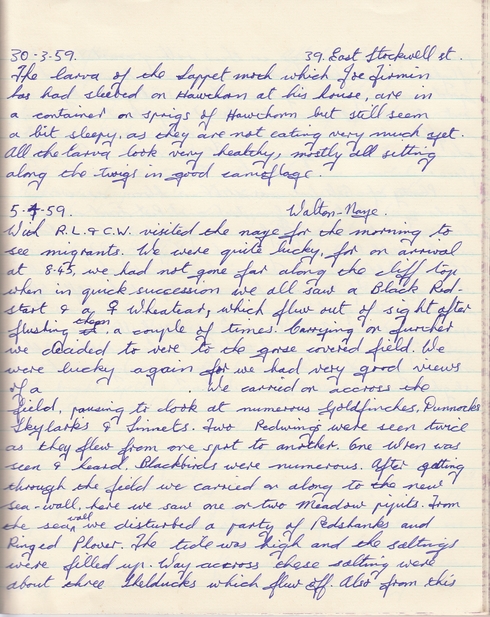 30-3-59. 39. East Stockwell st.
The larva of the Lappet moth which Joe Firmin
has had sleeved on Hawthorn at his house, are in
a container on sprigs of Hawthorn but still seem
a bit sleepy, as they are not eating very much yet.
All the larva look very healthy, mostly all sitting
along the twigs in good camoflage.
5-4-59. Walton-Naze.
With R.L. & C.W. visited the naze for the morning to
see migrants. We were quite lucky, for on arrival
at 8.45, we had not gone far along the cliff top
when in quick succession we all saw a Black Red-
start & a ♀ Wheatear, which flew out of sight after
flushing them a couple of times. Carrying on further
we decided to vere to the gorse covered field. We
were lucky again for we had very good views
of a . We carried on accross the
field, pausing to look at numerous Goldfinches, Dunnocks
Skylarks & Linnets. Two Redwings were seen twice
as they flew from one spot to another. One Wren was
seen & heard. Blackbirds were numerous. After getting
through the field we carried on along to the new
sea-wall, here we saw one or two Meadow pipits. From
the sea wall we disturbed a party of Redshanks and
Ringed Plover. The tide was high and the saltings
were filled up. Way accross these salting were
about three Shelducks which flew off. Also from this